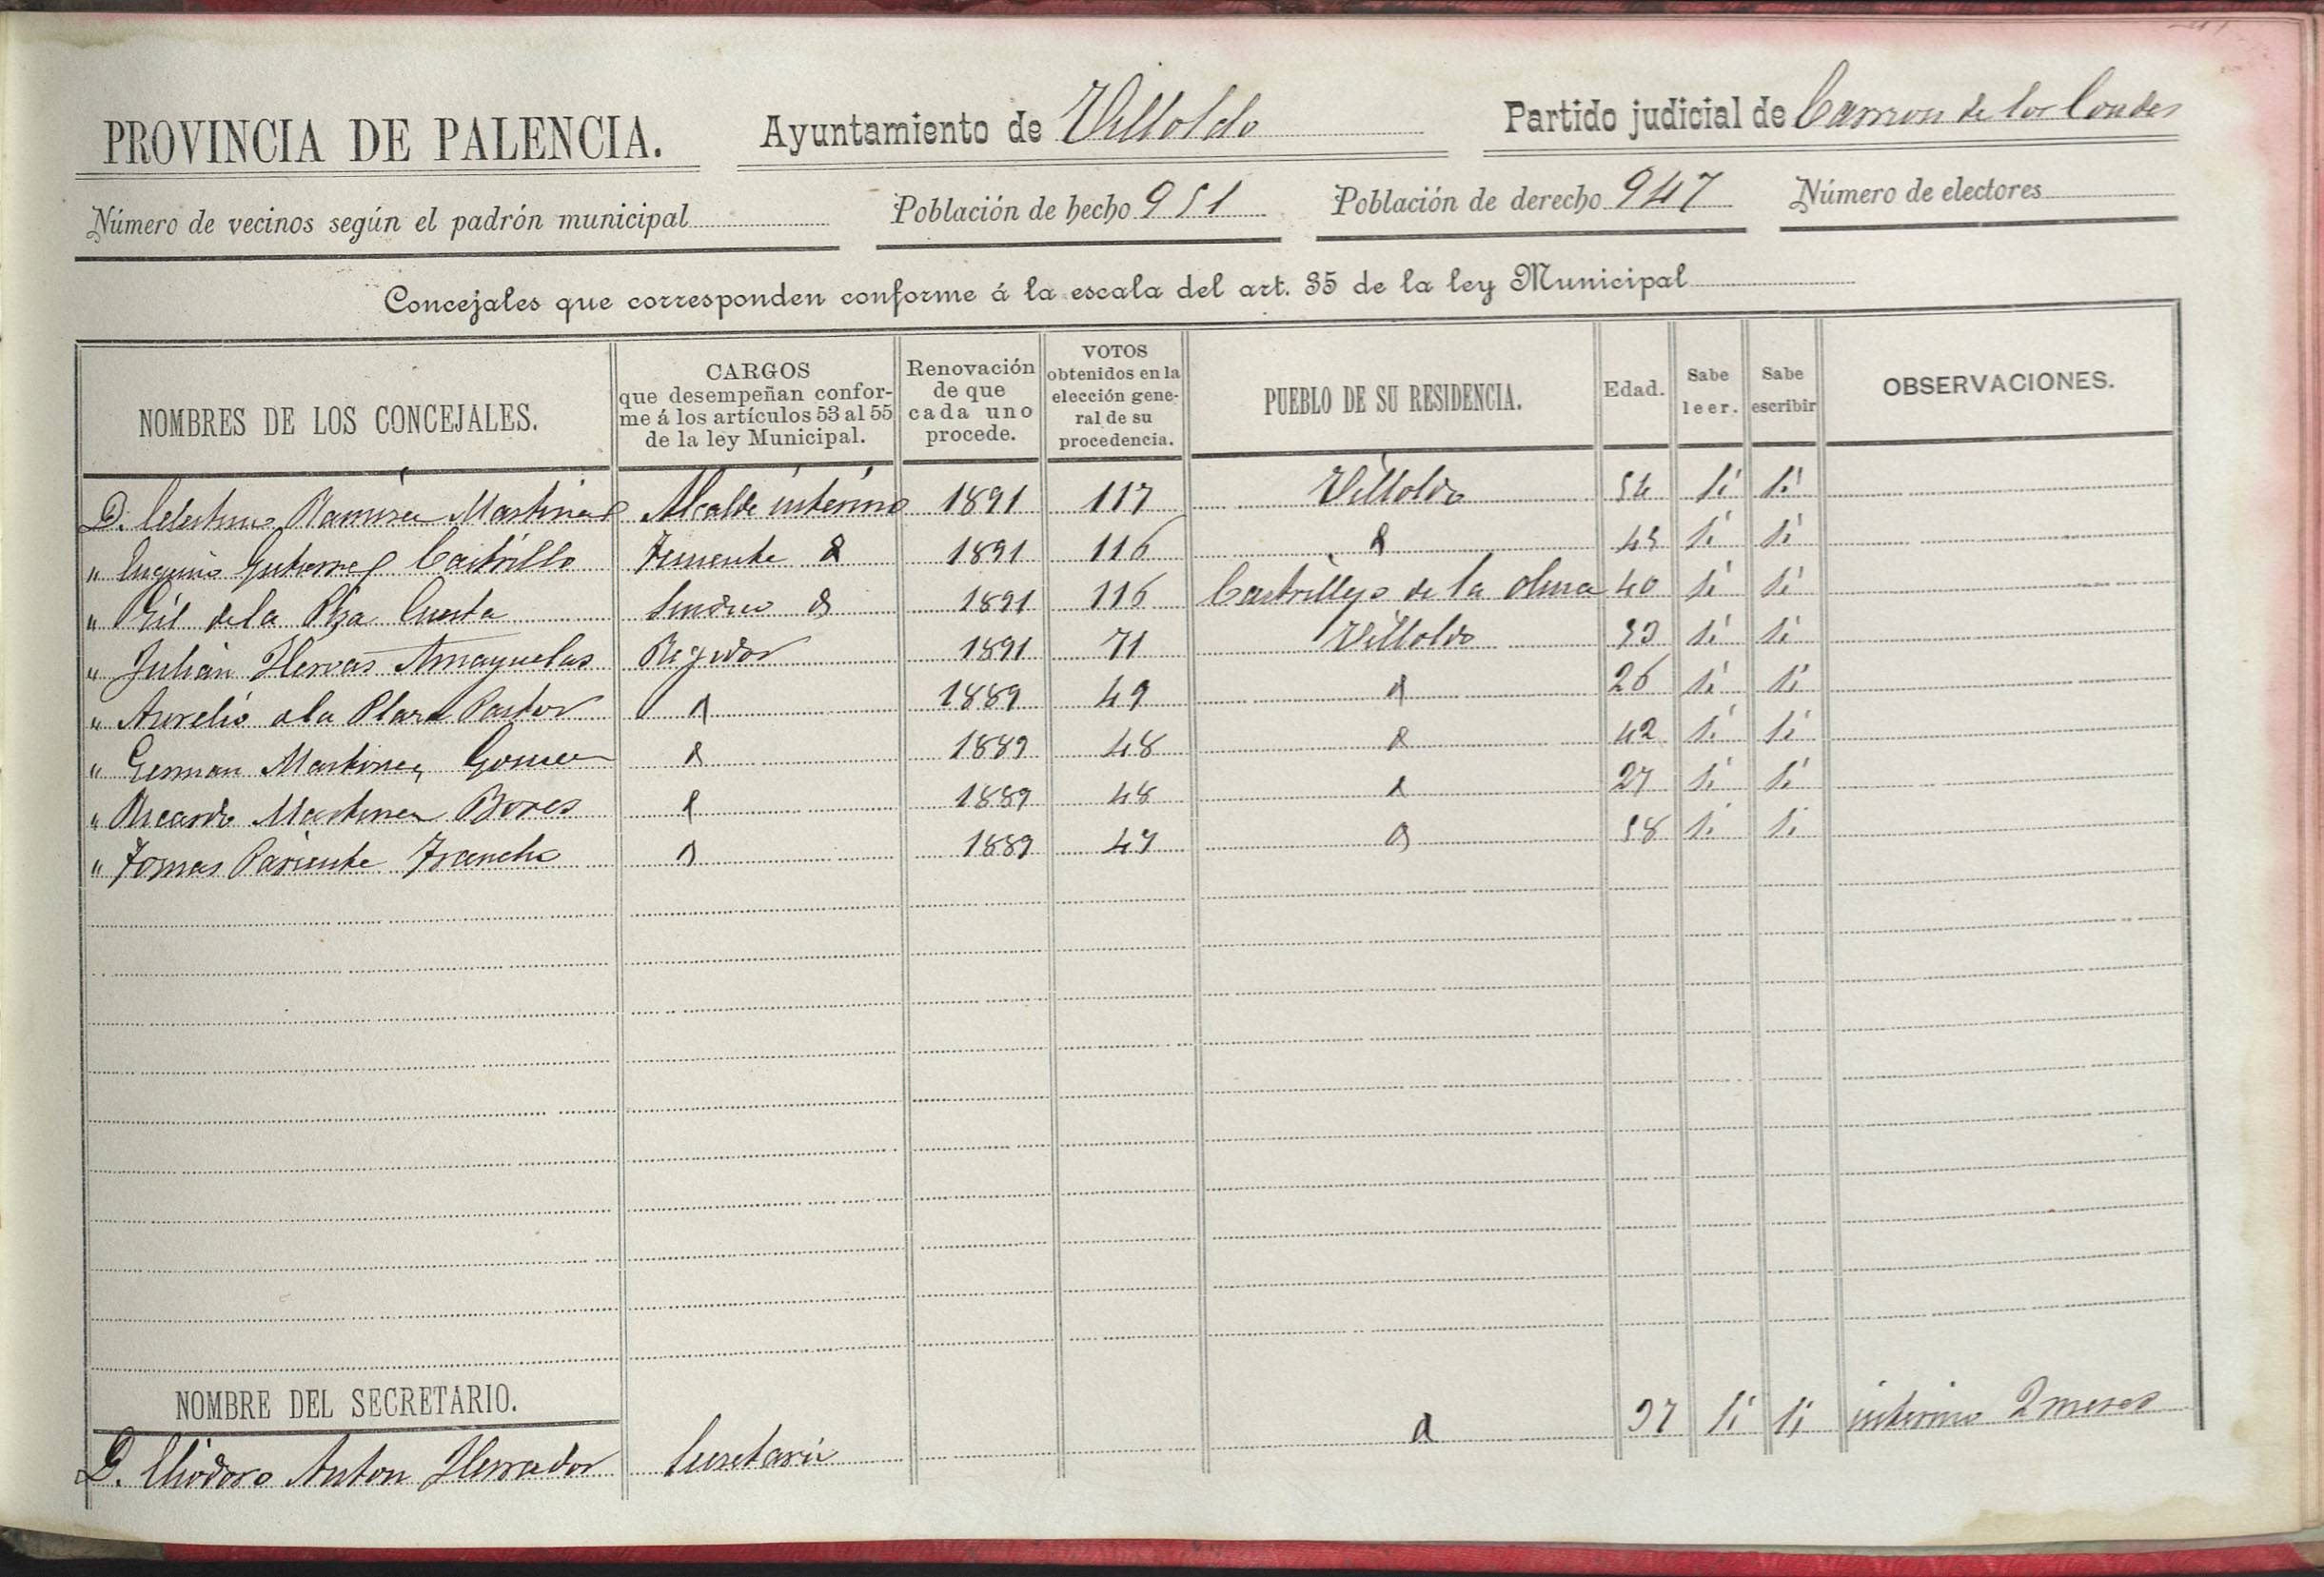 PROVINCIA DE PALENCIA. Ayuntamiento de Villoldo Partido judicial de Carrion de los Condes
Número de vecinos según el padrón municipal Población de hecho 951 Población de derecho 947 Número de electores
Concejales que corresponden conforme á la escala del art. 35 de la ley Municipal
NOMBRES DE LOS CONCEJALES. CARGOS que desempeñan conforme á los artículos 53 al 55 de la ley Municipal. Renovación de que cada uno procede. VOTOS obtenidos en la elección general de su procedencia. PUEBLO DE SU RESIDENCIA. Edad. Sabe leer. Sabe escribir OBSERVACIONES.
D. Celestino Ramirez Martinez Alcalde interino 1891 117 Villoldo 54 si si
" Eugenio Gutierrez Castrillo Teniente d 1891 116 d 45 si si
" Gil de la Plza Cuesta Sindico d 1891 116 Castrillejo de la olma 40 si si
" Julián Hervás Amayuelas Regidor 1891 71 Villoldo si si
" Aurelio de la Plaza Pastor d 1889 49 d 26 si si
" German Martinez Gomez d 1889 48 d 42 si si
" Ricardo Martinez Bores d 1889 48 d 27 si si
" Tomas Pariente Francho d 1889 47 d 58 si si
NOMBRE DEL SECRETARIO.
D. Eliodoro Anton Herrador Secretario d 37 si si interino 2 meses